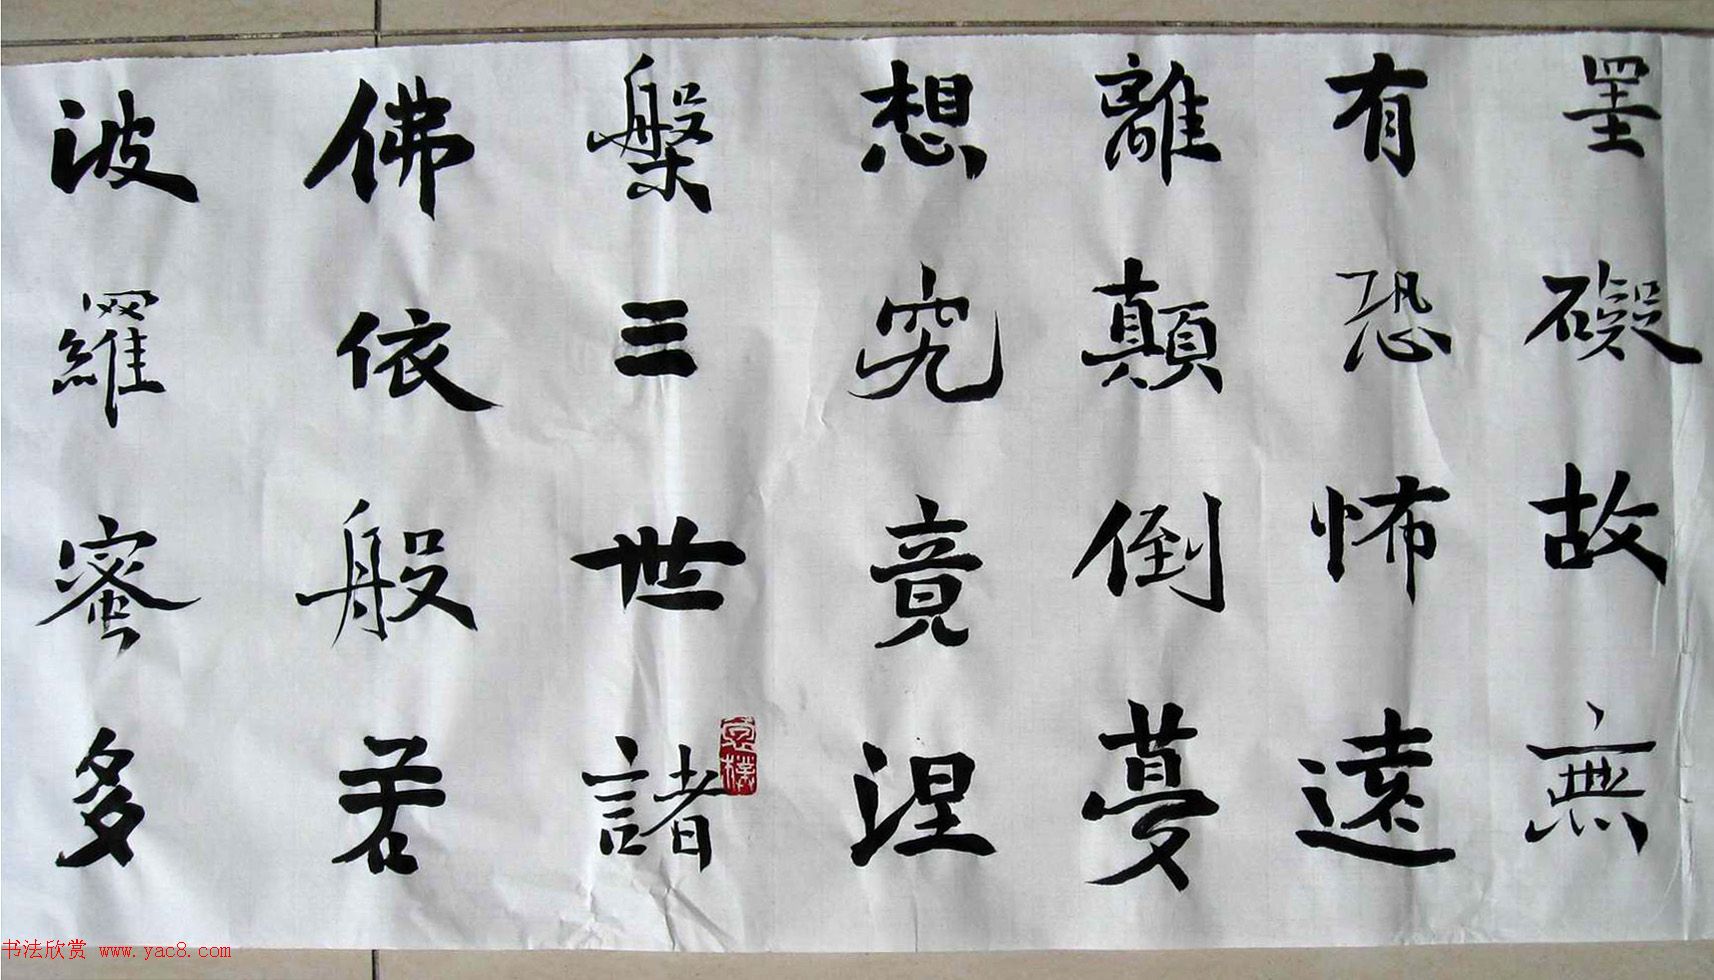 罣礙故無
有恐怖遠
離顛倒夢
想究竟涅
槃三世諸
佛依般若
波羅蜜多
书法欣赏 www.yac8.com